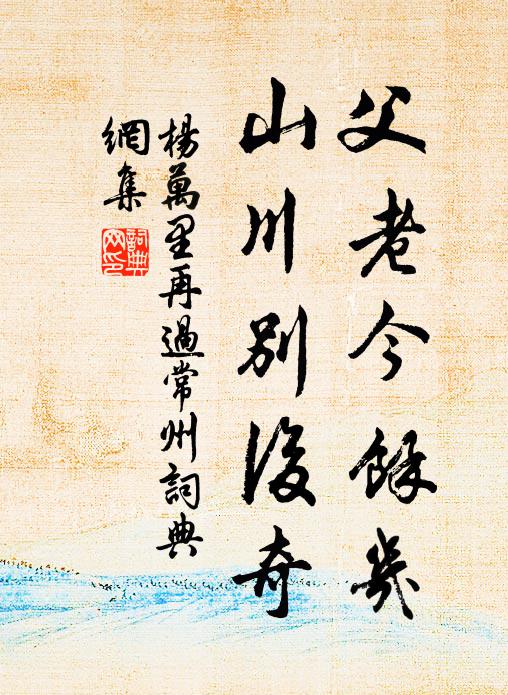 父老今餘幾
山川别後奇
楊萬里再過常州詞典
網集
詞典
网印